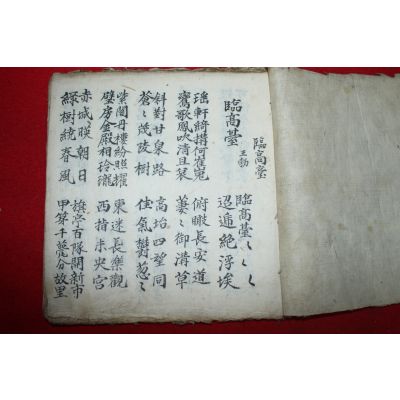 臨高臺
臨高臺
王勃
臨高臺〻〻〻
迢遞絕浮埃
瑤軒綺構何嵬
鸞歌鳳吹清且哀
俯瞰長安道
萋〻御溝草
斜對甘泉路
蒼〻茂陵樹
高坮四望同
佳氣鬱葱〻
紫閣丹樓紛照耀
璧房金殿相玲瓏
東迷長樂觀
西指未央宮
赤城映朝日
綠樹繞春風
旗亭百隊開新市
甲第千甍分故里